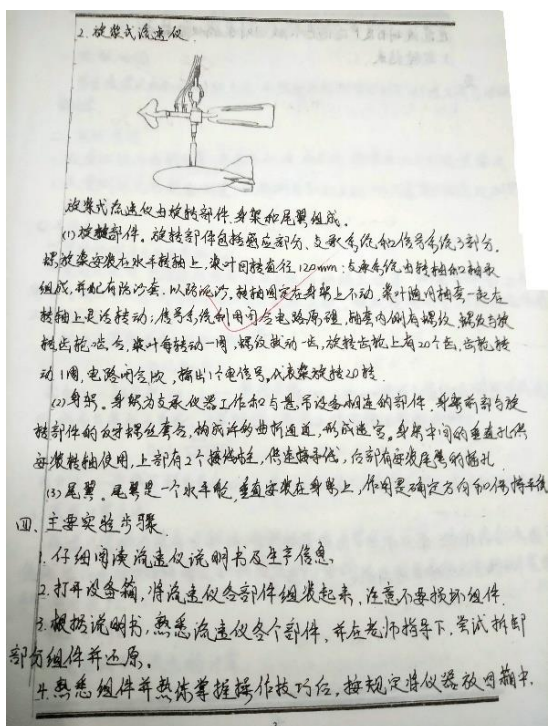 2. 旋桨式流速仪
旋桨式流速仪由旋转部件、身架和尾翼组成.
(1) 旋转部件。旋转部件包括感应部分、支承系统和信号系统3部分.
螺旋桨安装在水平转轴上,桨叶回转直径120mm;支承系统由转轴和轴承
组成,并配有防沙套,以防泥沙.转轴固定在身架上不动,桨叶随同轴套一起在
转轴上灵活转动;信号系统利用闭合电路原理,轴套内侧有螺纹,螺纹与旋
转齿轮啮合,桨叶每转动一周,螺纹拨动一齿,旋转齿轮上有20个齿,齿轮转
动1周,电路闭合1次,输出1个电信号,代表桨旋转20转.
(2) 身架。身架为支承仪器工作和与悬吊设备相连的部件.身架前部与旋
转部件的反牙螺丝套合,构成许多曲折通道,形成迷宫。身架中间的垂直孔供
安装转轴使用,上部有2个接线柱,供连接导线,后部有安装尾翼的插孔.
(3) 尾翼。尾翼是一个水平舵,垂直安装在身架上,作用是确定方向和保持平衡
四、主要实验步骤
1. 仔细阅读流速仪说明书及生产信息.
2. 打开设备箱,将流速仪各部件组装起来,注意不要损坏组件.
3. 根据说明书,熟悉流速仪各个部件,并在老师指导下,尝试拆卸
部分组件并还原。
4. 熟悉组件并熟练掌握操作技巧后,按规定将仪器放回箱中.